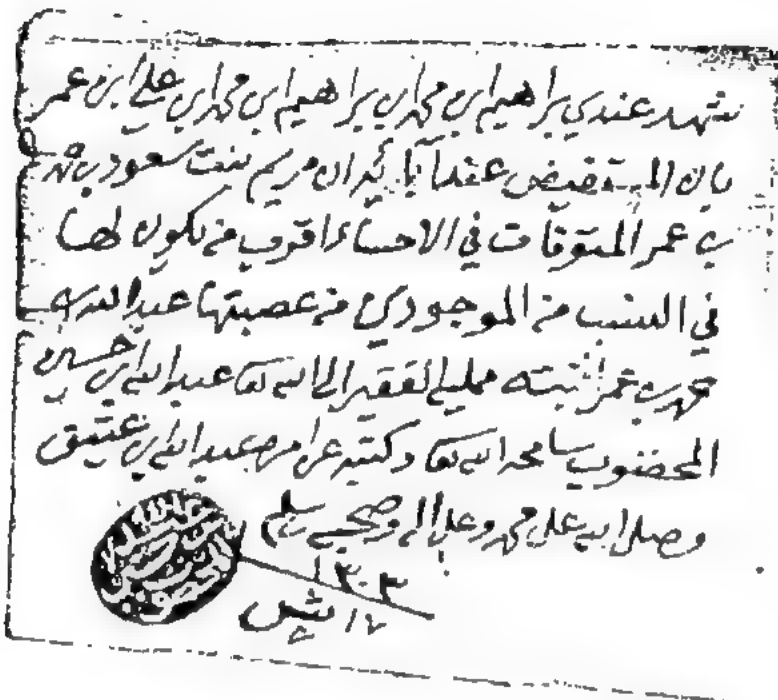 شهد عندي براهيم ابن محمد ابن براهيم ابن محمد ابن علي ابن عمر
بان المستفيض عند آبائه ان مريم بنت سعود بن محمد
بن عمر المتوفات في الاحساء اقرب من يكون لها
في النسب من الموجودين من عصبتها عبدالله بن
محمد بن عمر اثبته ممليه الفقير الى الله تعا عبدالله ابن حسين
المخضوب سامحه الله تعا وكتبه عن امره عبدالله ابن عتيق
وصلى الله على محمد وعلى اله وصحبه وسلم
١٣٠٣
١٧